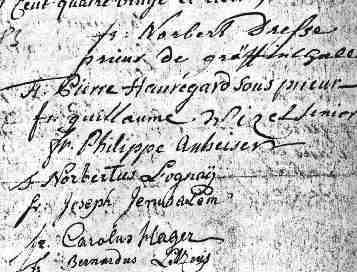 Cent quatre vingt et
fr: Norbert Dresse
prieur de gräffinthale
fr. Pierre Hauregard sous prieur
fr guillaume Wizet senior
fr. Philippe Anbeiser
f Norbertus Lognaÿ
fr. Joseph Jerusalem
fr. Carolus Hager
fr. Bernardus LeRoy